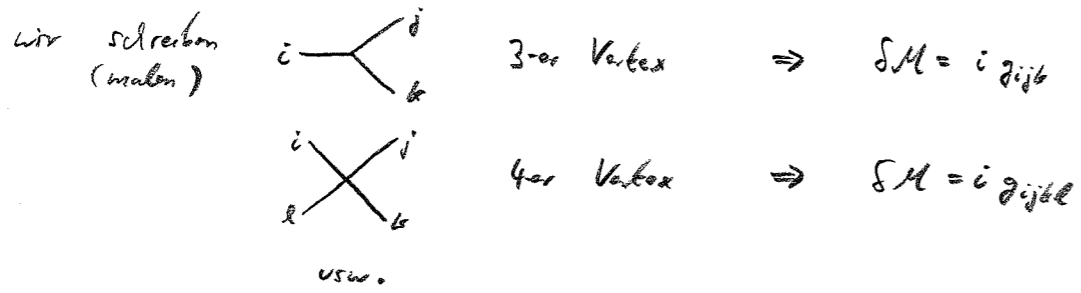 wir schreiben i j k 3-er Vertex ⇒ δM = i g_{ijk}
(malen)
i j l k 4-er Vertex ⇒ δM = i g_{ijkl}
usw.